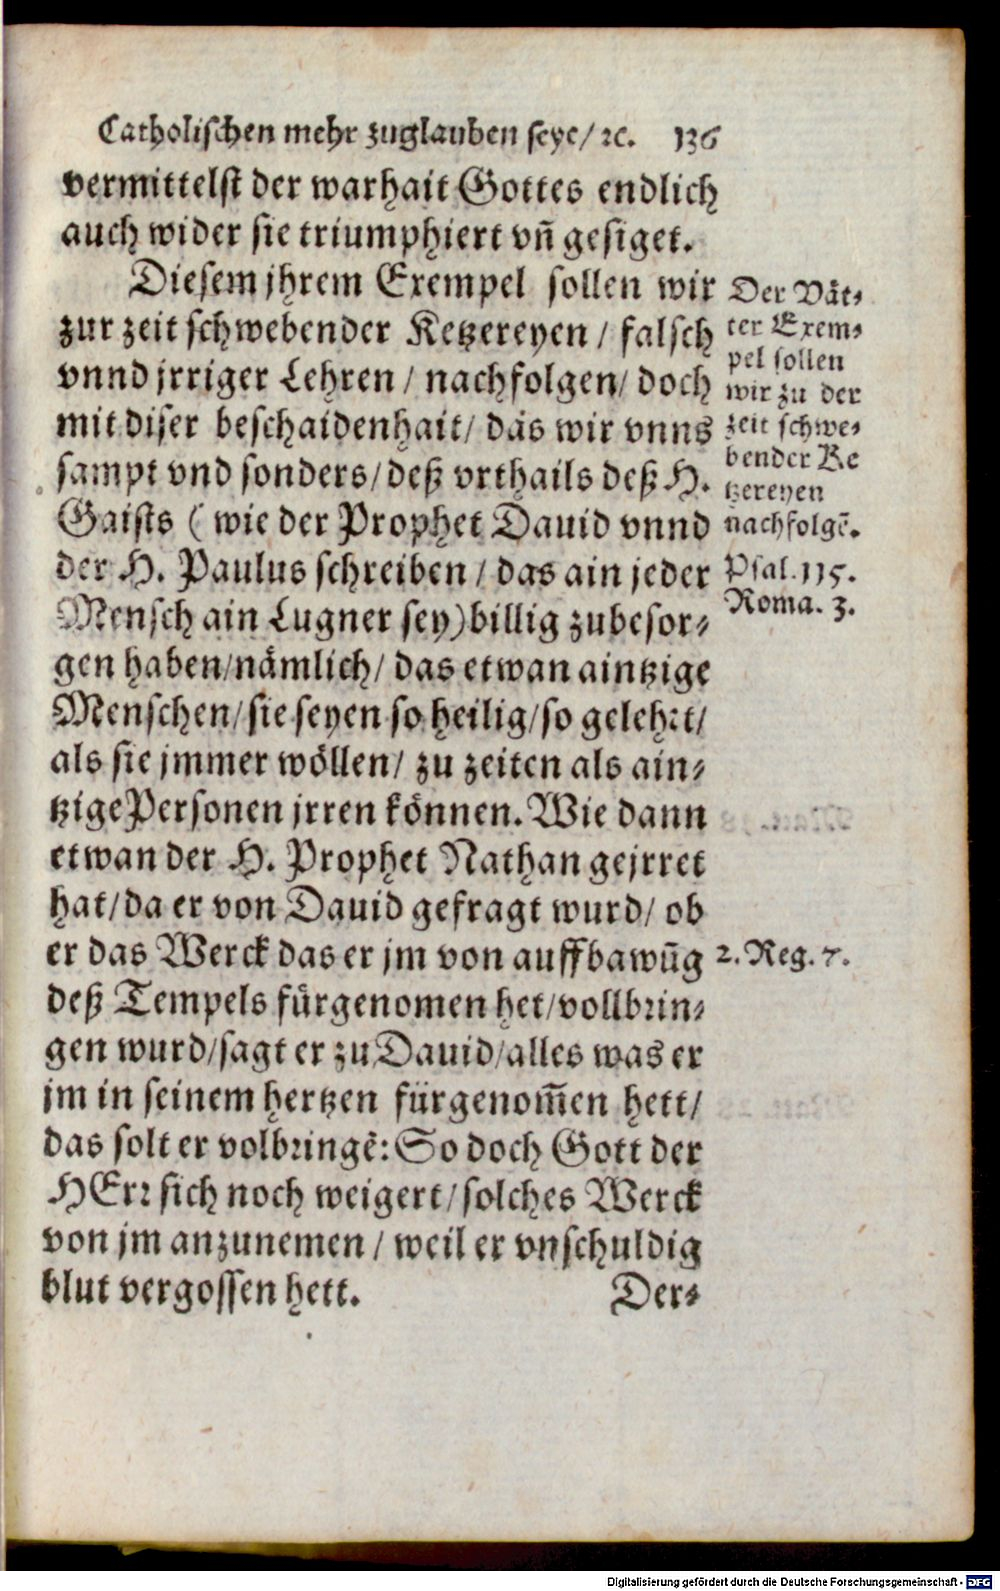 Catholischen mehr zuglauben seye/ ꝛc. 136
vermittelst der warhait Gottes endlich
auch wider sie triumphiert vñ gesiget.
Diesem jhrem Exempel sollen wir
zur zeit schwebender Ketzereyen / falsch
vnnd jrriger Lehren / nachfolgen / doch
mit diser beschaidenhait / das wir vnns
sampt vnd sonders / deß vrthails deß H.
Gaists ( wie der Prophet Dauid vnnd
der H. Paulus schreiben / das ain jeder
Mensch ain Lugner sey) billig zubesor⸗
gen haben / nämlich / das etwan aintzige
Menschen / sie seyen so heilig / so gelehrt /
als sie jmmer wöllen / zu zeiten als ain⸗
tzige Personen jrren können. Wie dann
etwan der H. Prophet Nathan gejrret
hat / da er von Dauid gefragt wurd / ob
er das Werck das er jm von auffbawūg
deß Tempels fürgenomen het / vollbrin⸗
gen wurd / sagt er zu Dauid / alles was er
jm in seinem hertzen fürgenom̃en hett /
das solt er volbringẽ: So doch Gott der
HErr sich noch weigert / solches Werck
von jm anzunemen / weil er vnschuldig
blut vergossen hett.
Der⸗
Der Vät⸗
ter Exem⸗
pel sollen
wir zu der
zeit schwe⸗
bender Ke
tzereyen
nachfolgẽ.
Psal. 115.
Roma. 3.
2. Reg. 7.
Digitalisierung gefördert durch die Deutsche Forschungsgemeinschaft - DFG